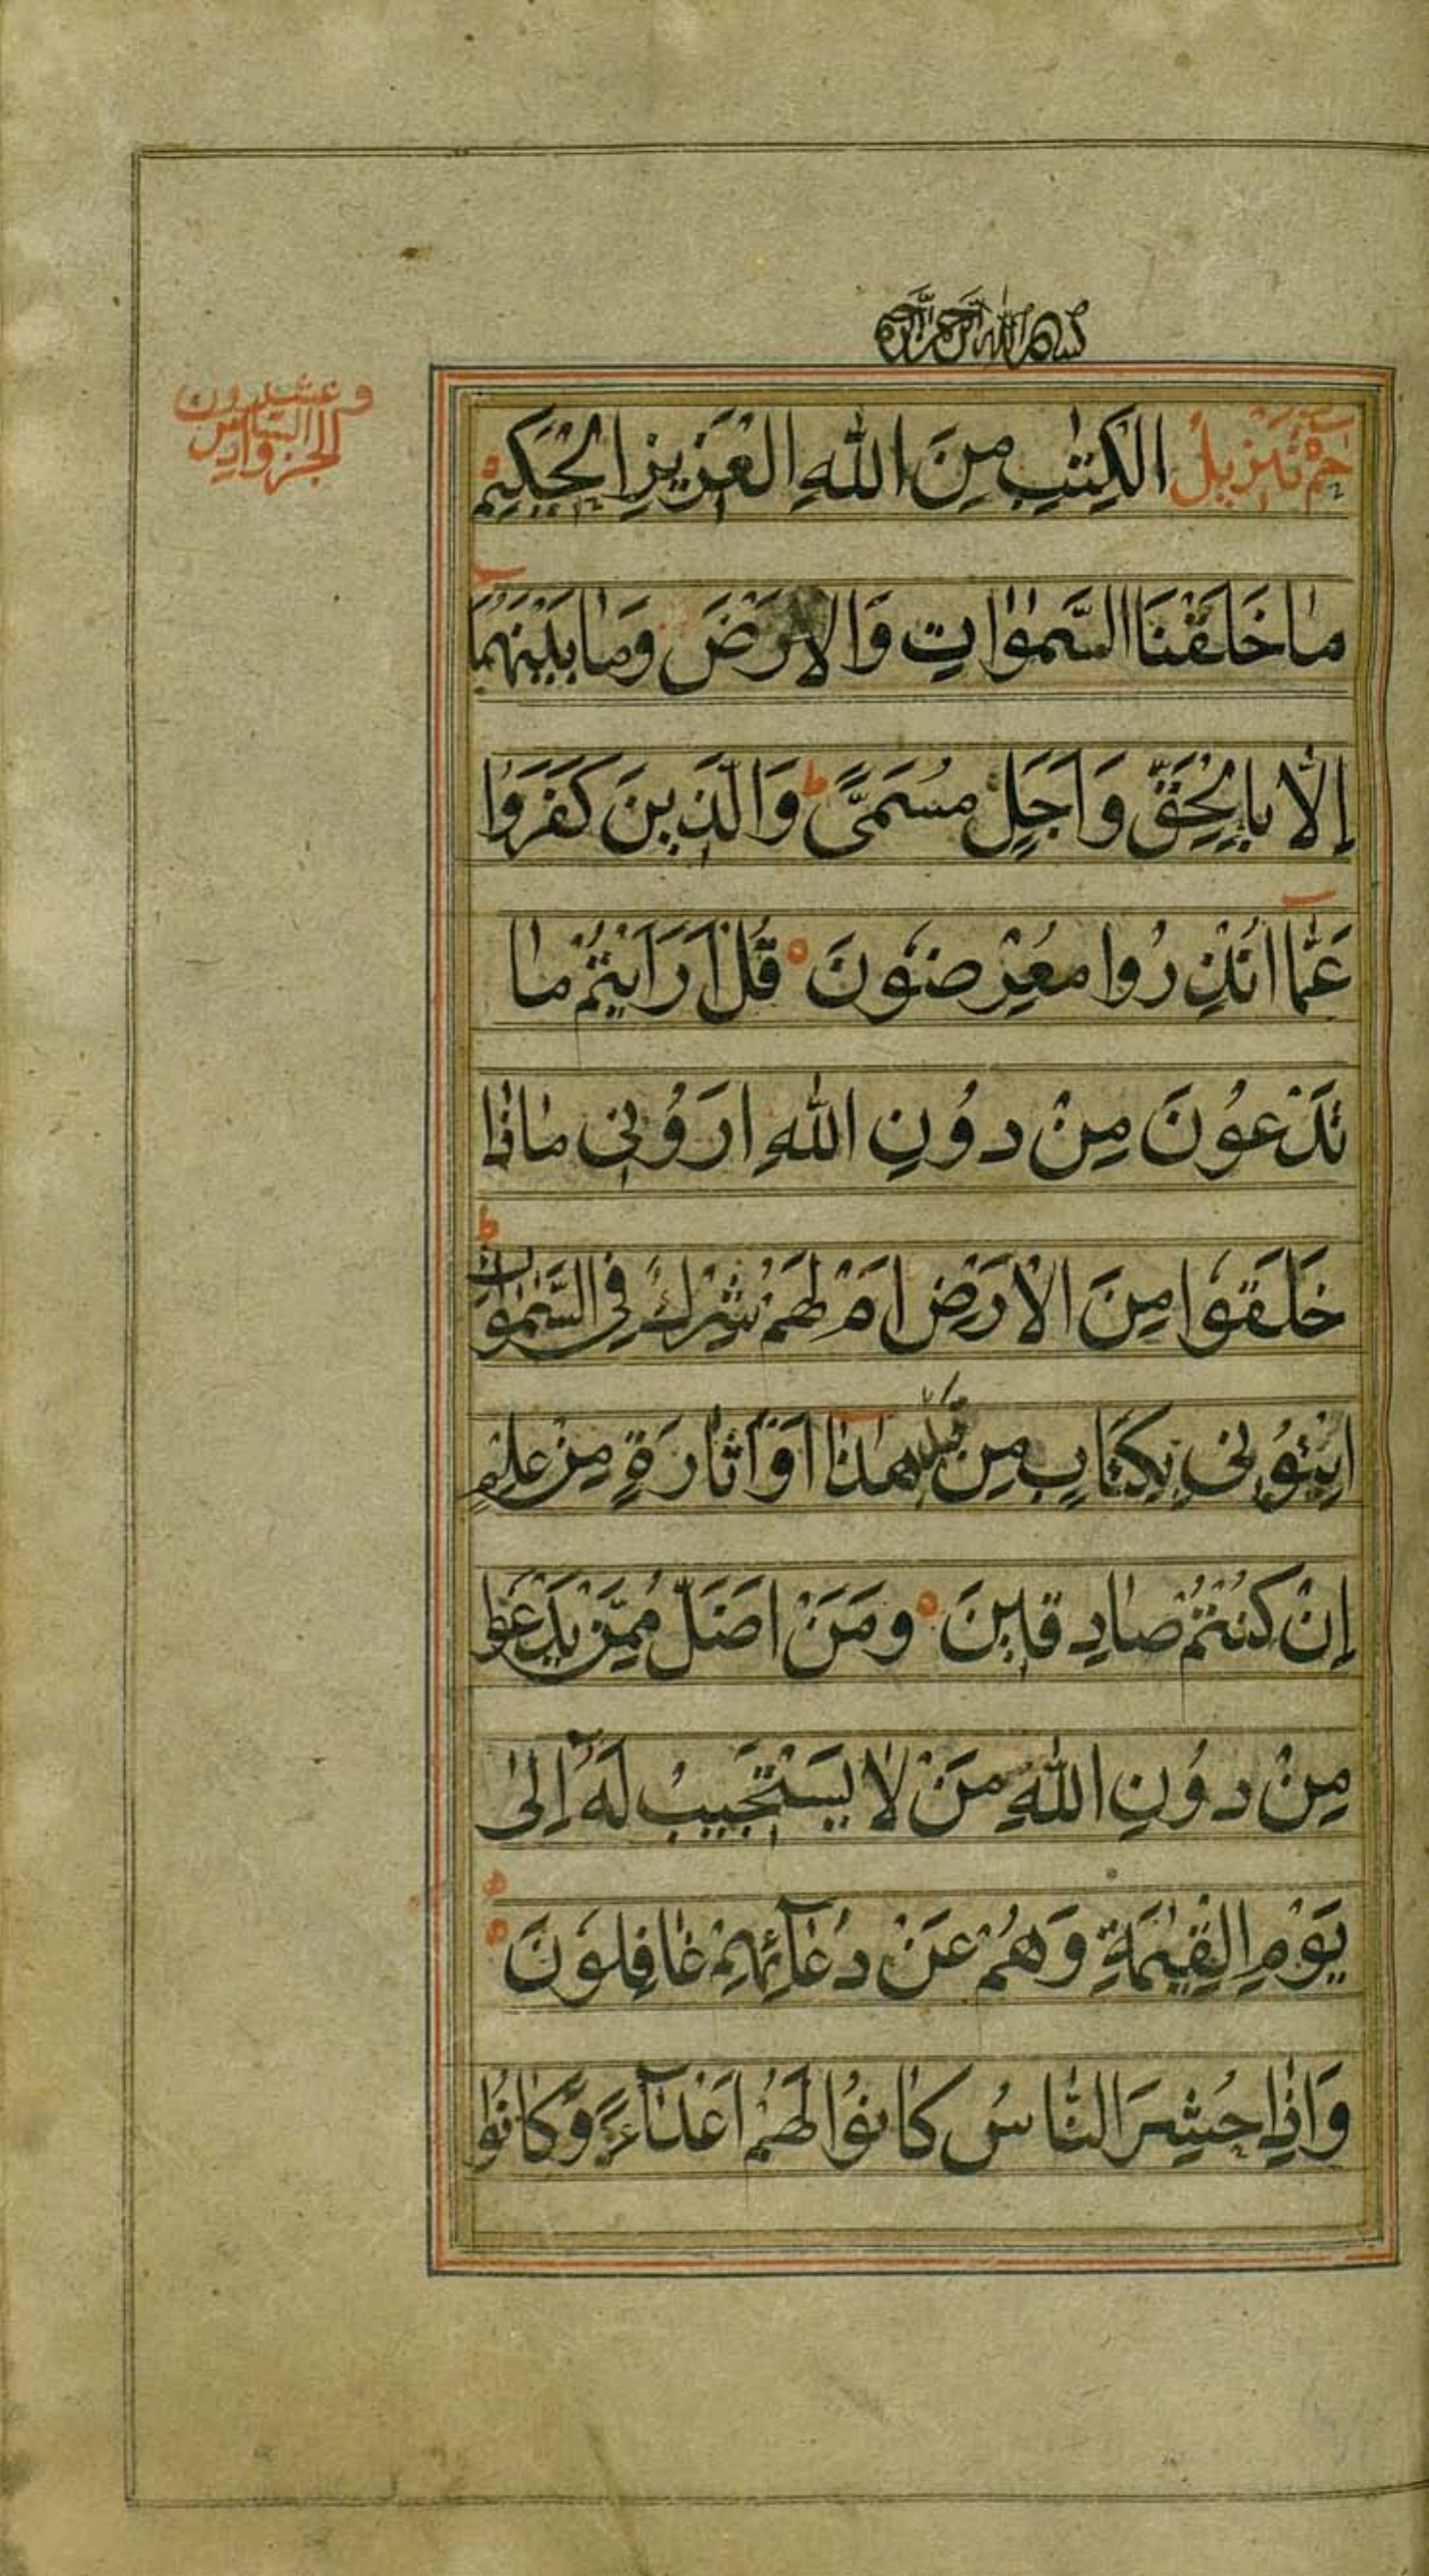 بسم الله الرحمن الرحيم
الجزو السادس
وعشرون
حٰمٓ تَنْزِيلُ الْكِتٰبِ مِنَ اللهِ الْعَزِيزِ الْحَكِيمِ
مَا خَلَقْنَا السَّمٰوَاتِ وَالْاَرْضَ وَمَا بَيْنَهُمَا
اِلَّا بِالْحَقِّ وَاَجَلٍ مُسَمًّى ط وَالَّذِينَ كَفَرُوا
عَمَّا اُنْذِرُوا مُعْرِضُونَ قُلْ اَرَاَيْتُمْ مَا
تَدْعُونَ مِنْ دُونِ اللهِ اَرُونِى مَاذَا
خَلَقُوا مِنَ الْاَرْضِ اَمْ لَهُمْ شِرْكٌ فِى السَّمٰوَاتِ ط
ايْتُونِى بِكِتَابٍ مِنْ قَبْلِ هٰذَا اَوْ اَثَارَةٍ مِنْ عِلْمٍ
اِنْ كُنْتُمْ صَادِقِينَ وَمَنْ اَضَلُّ مِمَّنْ يَدْعُوا
مِنْ دُونِ اللهِ مَنْ لَا يَسْتَجِيبُ لَهُ اِلٰى
يَوْمِ الْقِيٰمَةِ وَهُمْ عَنْ دُعَآئِهِمْ غَافِلُونَ
وَاِذَا حُشِرَ النَّاسُ كَانُوا لَهُمْ اَعْدَآءً وَكَانُوا